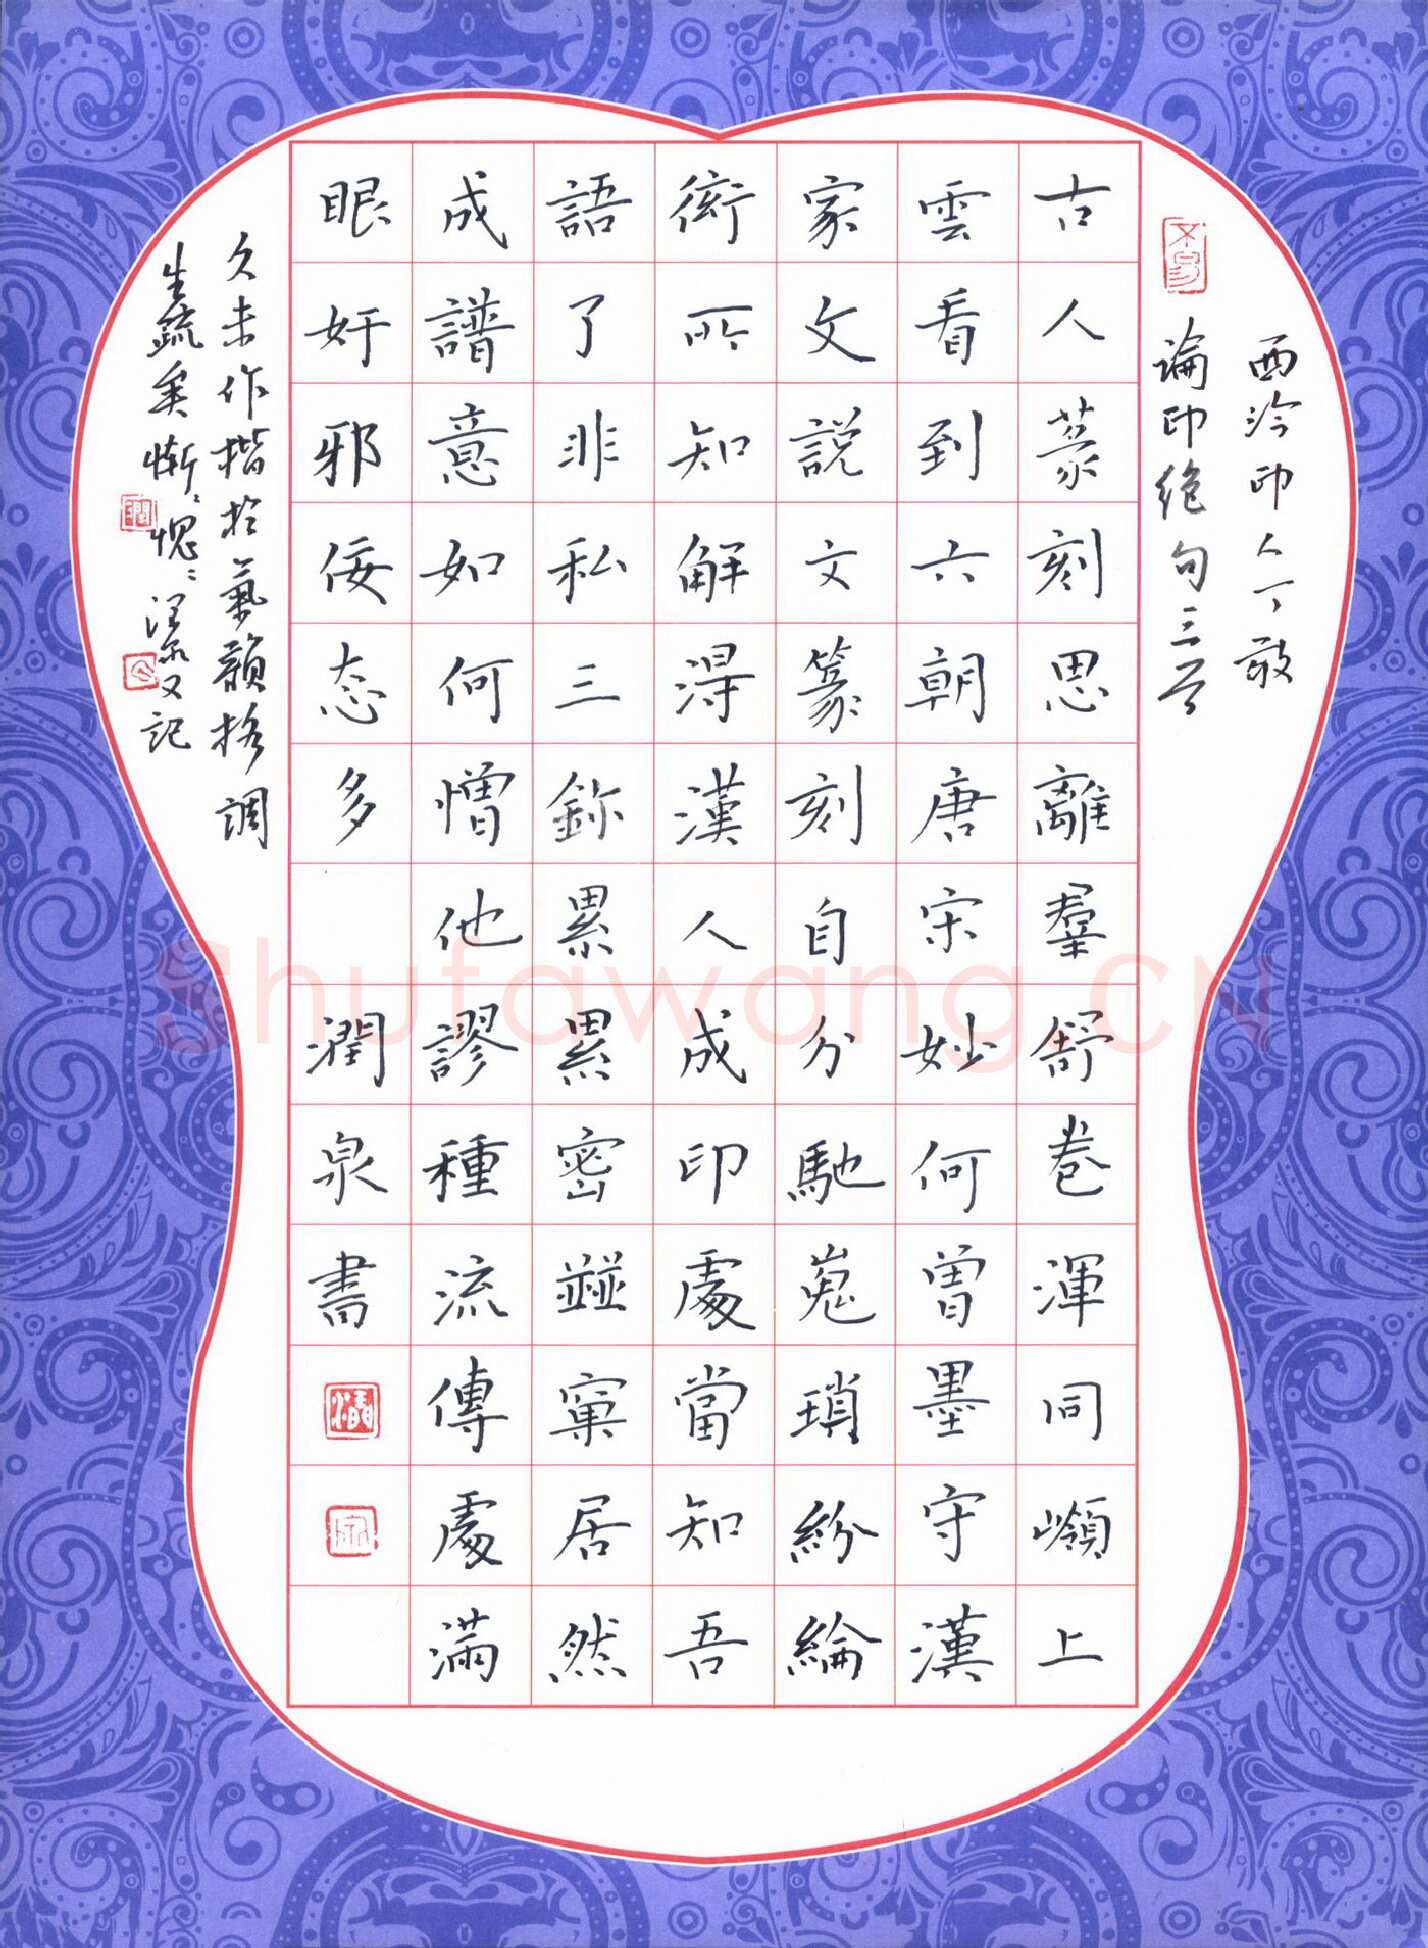 西泠印人丁敬
論印絕句三首
古人篆刻思離羣舒卷渾同嶺上
雲看到六朝唐宋妙何曾墨守漢
家文說文篆刻自分馳嵬瑣紛綸
衒所知解得漢人成印處當知吾
語了非私三鉨累累密竝窠居然
成譜意如何憎他謬種流傳處滿
眼奸邪佞态多 潤泉書
久未作楷於氣韻格調
生疏矣慚〻愧〻潤泉又記
Shufawang.CN